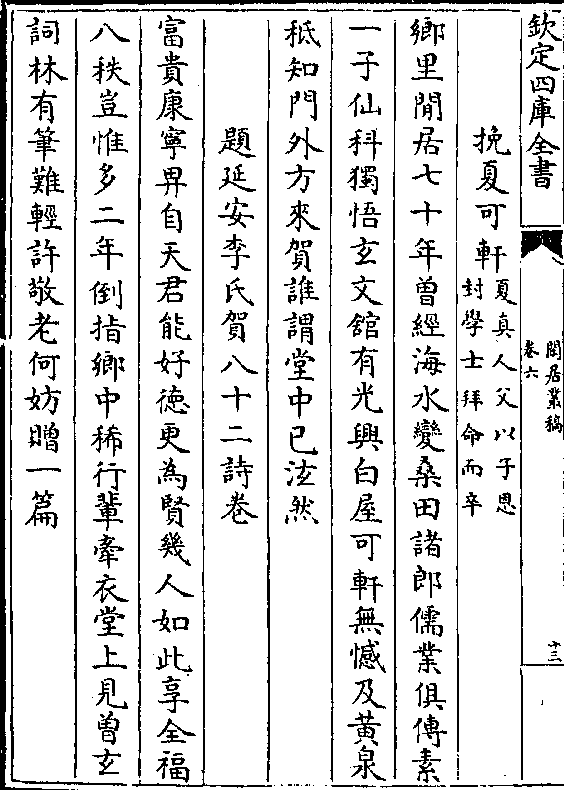 欽定四庫全書
閒居叢稿
卷六
十三
挽夏可軒夏真人父以子恩
封學士拜命而卒
鄉里閒居七十年曾經海水變桑田諸郎儒業俱傳素
一子仙科獨悟玄文館有光興白屋可軒無憾及黃泉
秪知門外方來賀誰謂堂中已泫然
題延安李氏賀八十二詩卷
富貴康寧畀自天君能好徳更為賢幾人如此享全福
八秩豈惟多二年倒指鄉中稀行輩牽衣堂上見曾玄
詞林有筆難輕許敬老何妨贈一篇